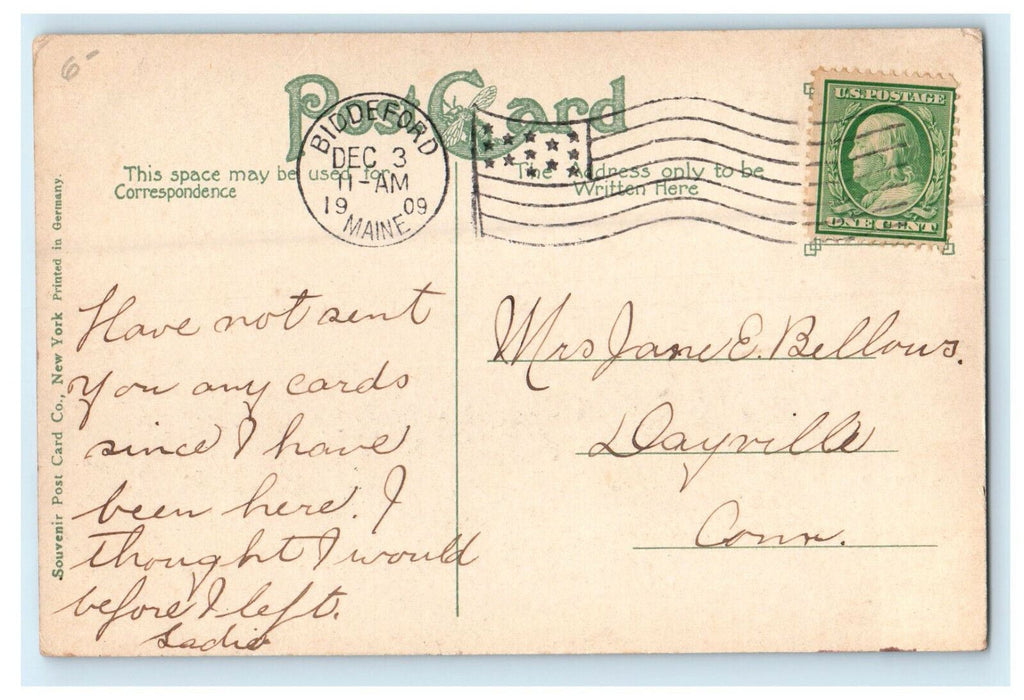 6-
Post Card
BIDDEFORD
DEC 3
11-AM
19 09
MAINE
U.S. POSTAGE
ONE CENT
This space may be used for
Correspondence
The Address only to be
Written Here
Souvenir Post Card Co., New York Printed in Germany.
Have not sent
you any cards
since I have
been here. I
thought I would
before I left.
Sadie
Mrs Jane E. Bellows.
Dayville
Conn.